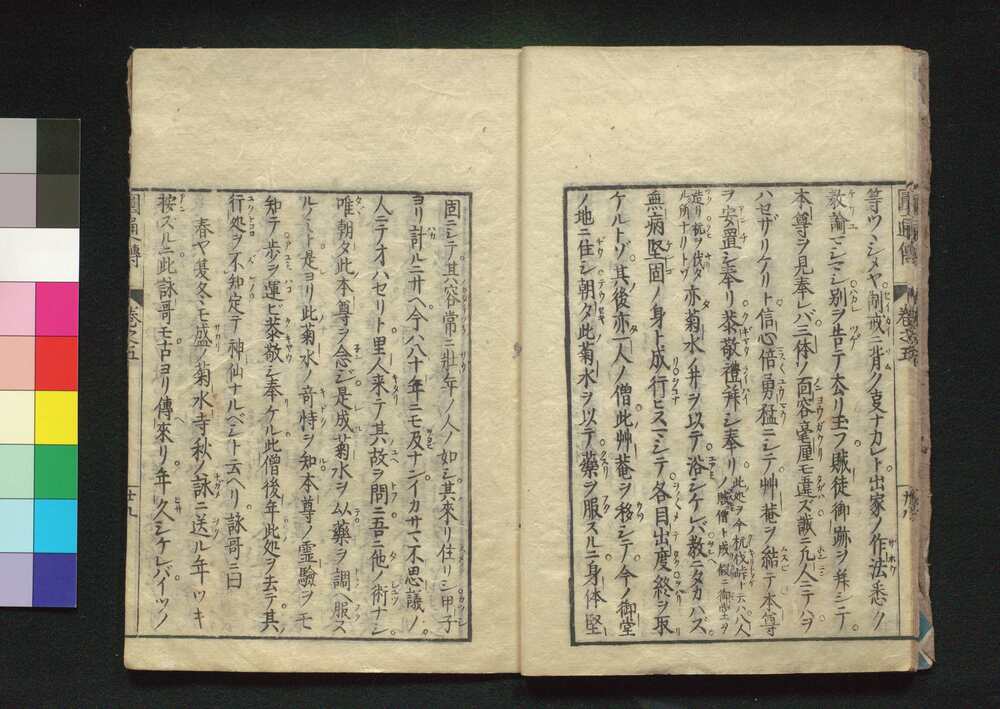 等ツヽシメヤ制戒ニ背ク支ナカレト出家ノ作法悉ノ
教諭マシマシ別ヲ告テ去リ玉フ賊徒御跡ヲ拜シテ
本尊ヲ見奉レバ三体ノ面容毫厘モ違ズ誠ニ凡人ニテヲ
ハセザリケリト信心倍勇猛ニシテ艸菴ヲ結テ本尊
ヲ安置シ奉リ恭敬禮拜シ奉リ
ル所ナリトゾ亦菊水ノ井ヲ以テ浴シケレバ教ニタカハズ
無病堅固ノ身ト成行ヒスマシテ各目出度終ヲ取
ケルトゾ其後亦一人ノ僧此艸菴ヲ移シテ今ノ御堂
ノ地ニ住シ朝タ此菊水ヲ以テ藥ヲ服スルニ身体堅
圓通傳 巻之五
固ニシテ其容常ニ壯年ノ人ノ如シ其來リ住リシ甲子
ヨリ計ルニ廿ヘ今八八十年ニモ及ナンイカサマ不思議ノ
人ニテオハセリト里人来テ其故ヲ問ニ吾ニ他ノ術ナシ
唯朝タ此本尊ヲ念ジ是成菊水ヲ以藥ヲ調ヘ服ス
ルノミト是ヨリ此菊水ノ奇特ヲ知本尊ノ霊驗ヲモ
知テ歩ヲ運ビ恭敬シ奉ケル此僧後年此処ヲ去テ其
行処ヲ不知定テ神仙ナルベシト云ヘリ詠哥ニ曰
春ヤ夏冬モ盛ノ菊水寺秋ノ詠ニ送ル年ツキ
按ズルニ此詠哥モ古ヨリ傳來リ年久シケレバイツノ
圓通傳 巻之五 廿九